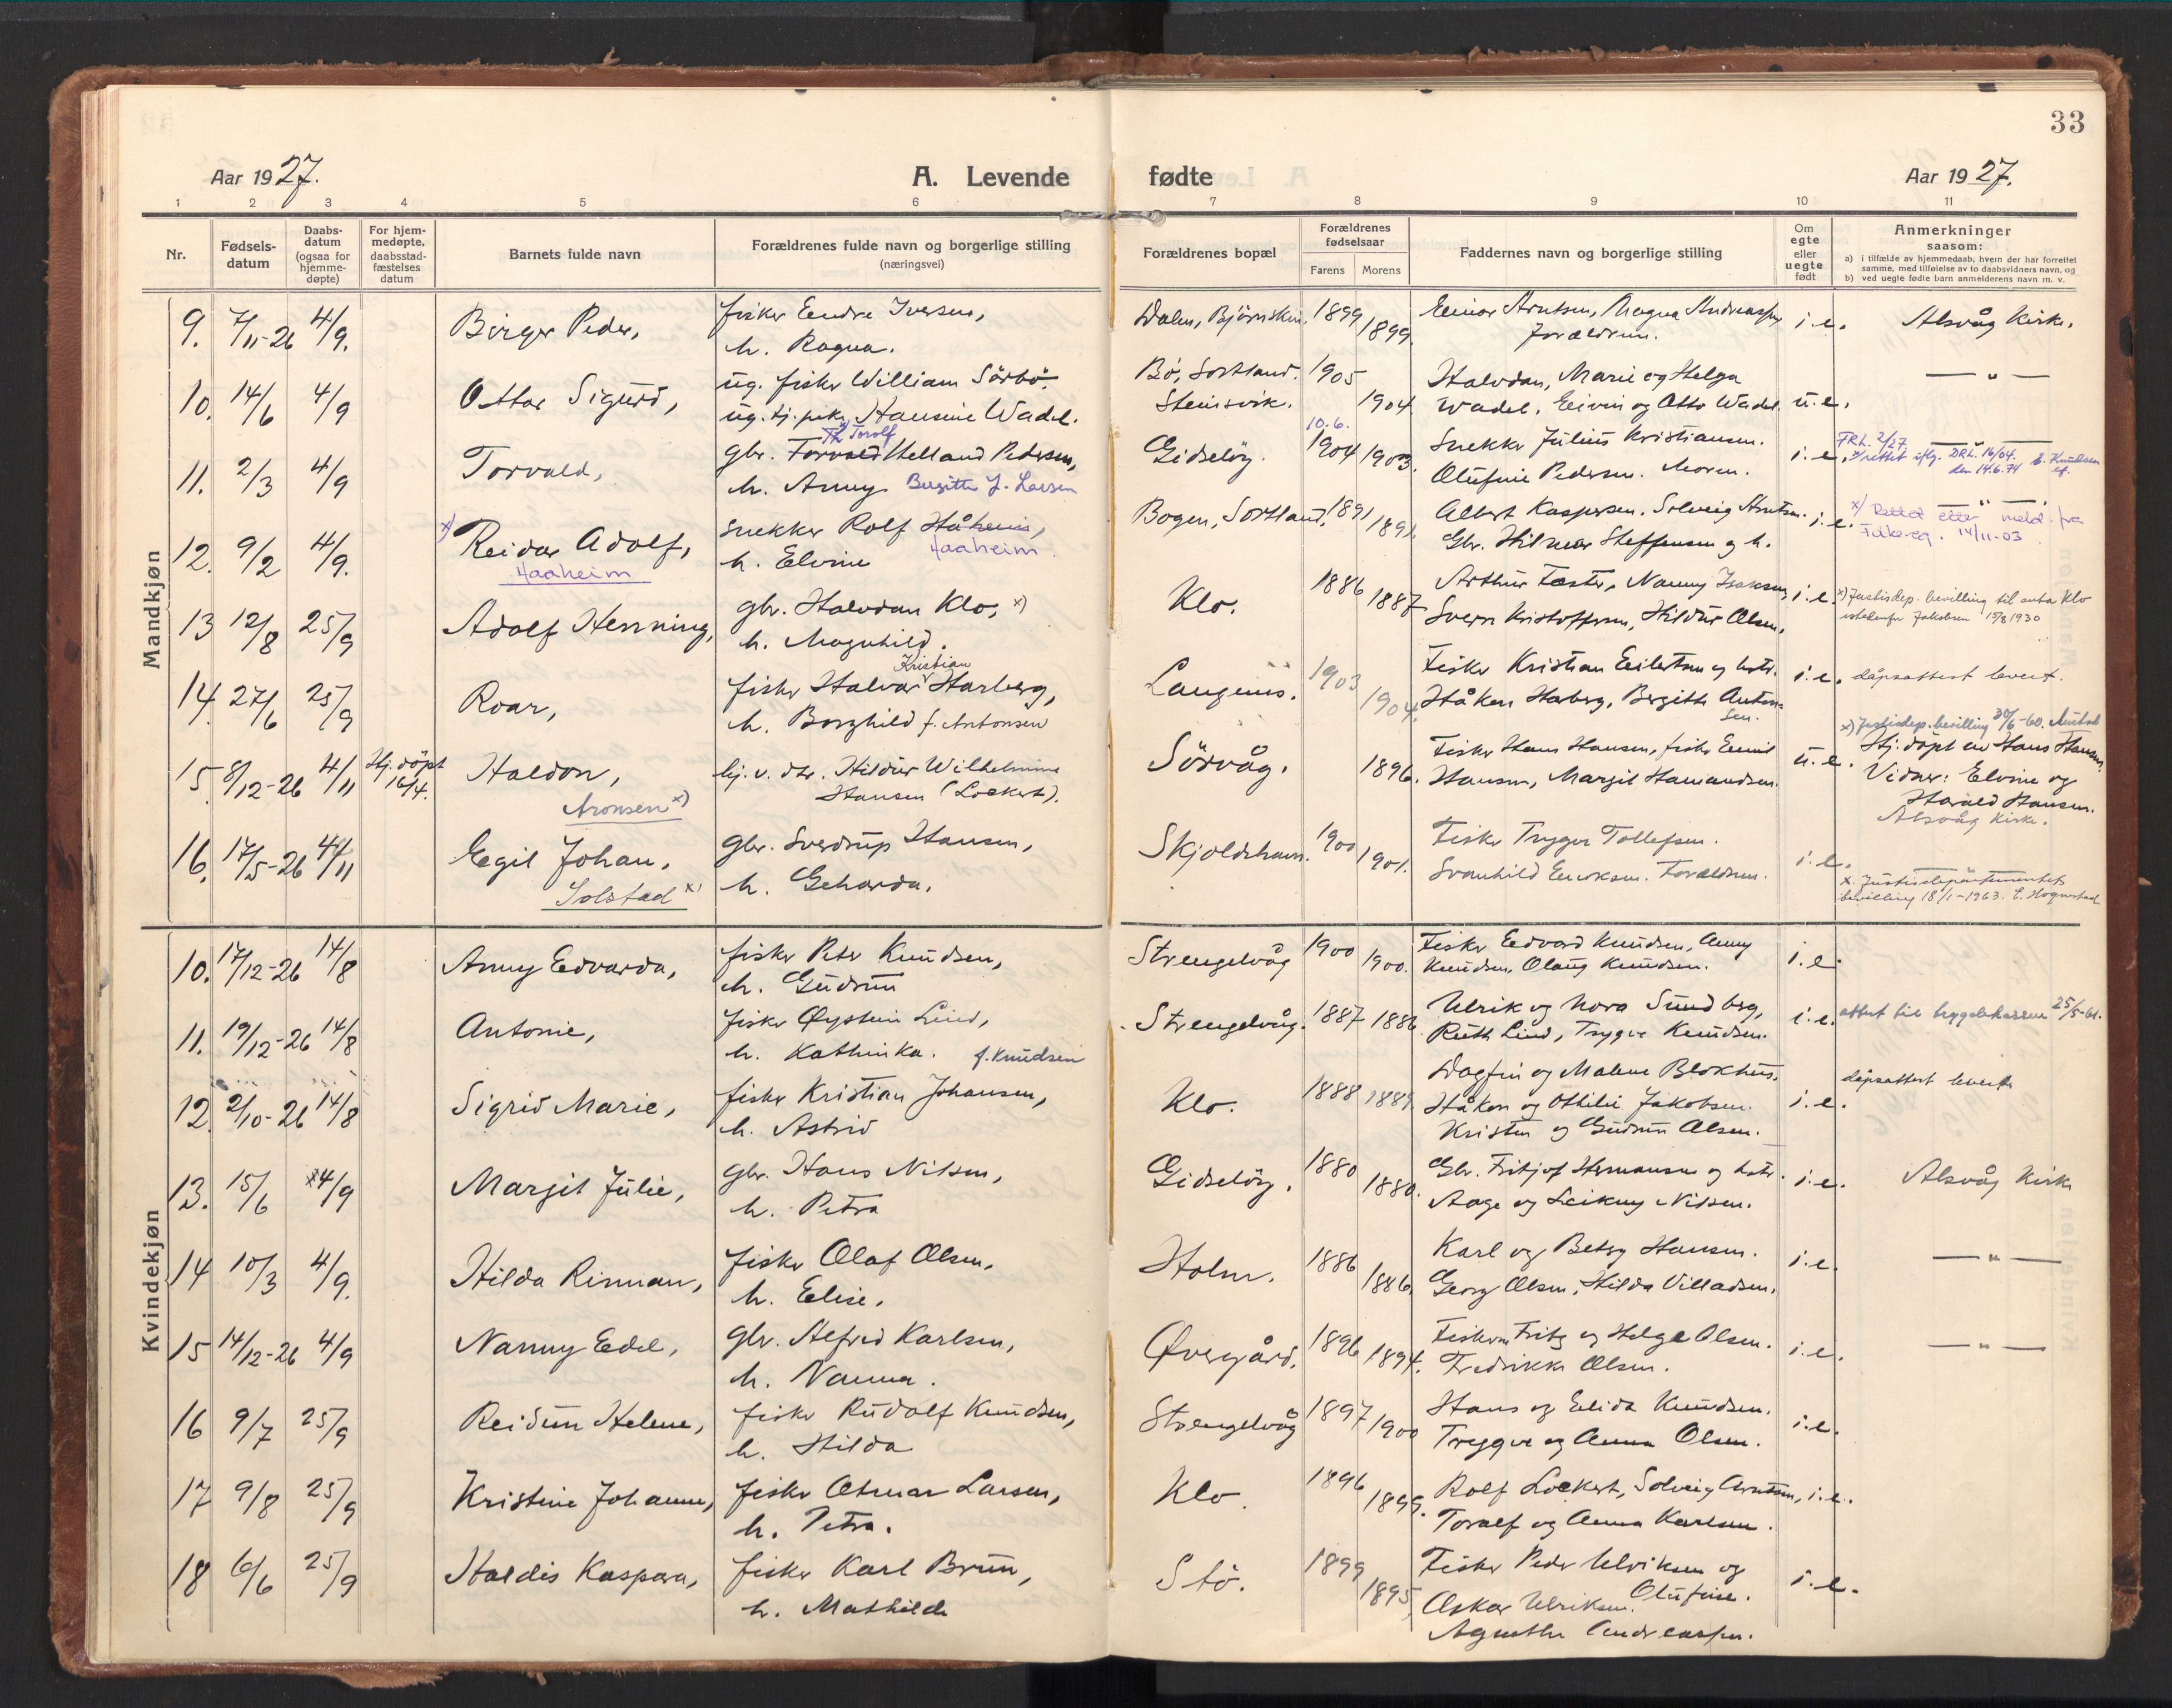 33
Aar 1927.
A. Levende
fødte
Aar 1927.
1 2 3 4 5 6
7 8 9 10 11
Nr.
Fødsels-
datum
Daabs-
datum
(ogsaa for
hjemme-
døpte)
For hjem-
medøpte,
daabsstad-
fæstelses
datum
Barnets fulde navn
Forældrenes fulde navn og borgerlige stilling
(næringsvei)
Forældrenes bopæl
Forældrenes
fødselsaar
Farens Morens
Faddernes navn og borgerlige stilling
Om
egte
eller
uegte
født
Anmerkninger
saasom:
a) i tilfælde av hjemmedaab, hvem der har forrettet
samme, med tilføielse av to daabsvidners navn, og
b) ved uegte fødte barn anmelderens navn m. v.
Mandkjøn
9. 7/11-26 4/9. Birger Peder, fisker Endre Iversen,
h. Ragna.
1899 1899. Einar Arntsen, Magna Andreassen
Forældrene. i.e. Alsvåg Kirke.
10. 14/6 4/9 Ottar Sigurd, ug. fisker William Sörbö.
ug. tj. pike Hansine Wadel.
Bö, Sortland. 1905 Halvdan, Marie og Helga
Steinsvik. 1904 Wadel, Eivin og Otto Wadel. u.e. — " —
11. 2/3 4/9 Torvald, gbr. Torvald Helland Pedersen,
Torolf
h. Anny Birgitte J. Larsen
10.6.
Gidselöy. 1904 1903. Snekker Julius Kristiansen.
Olufine Pedersen. Moren. i.e. — " —
FRL. 2/27
rettet iflg. DRL. 16/04. E. Knudsen
den 14.6.74 ef.
12. 9/2 4/9. x) Reidar Adolf, snekker Rolf Håheim,
Haaheim
h. Elvine Haaheim.
Bogen, Sortland. 1891 1891. Albert Kaspersen. Solveig Arntsen.
Gbr. Hilmar Steffensen og h. i.e. — " —
x) Rettet etter meld. fra
Folkereg. 14/11-03
13 12/8 25/9 Adolf Henning, gbr. Halvdan Klo, x)
h. Magnhild.
Klo. 1886 1887 Arthur Foster, Nanny Isaksen,
Sverre Kristoffersen, Hildur Olsen. i.e. x) Justisdep. bevilling til anta Klo
istedenfor Jakobsen 15/8 1930
14. 27/6 25/9 Roar, fisker Halvar Kristian Harberg,
h. Borghild f. Antonsen
Langenes. 1903 1904. Fisker Kristian Eilertsen og hstr.
Håkon Harberg, Birgitte Anton-
sen. i.e. dåpsattest levert.
15. 8/12-26 4/11 Hj. döpt
16/4. Haldon,
Aronsen x)
hj. v. dtr. Hildur Wilhelmine
Hansen (Lockert).
Sörvåg. 1896. Fisker Hans Hansen, fisker Emil
Hansen, Margit Hamandsen. u.e.
x) Justisdep. bevilling 30/6-60.
Hj. döpt av Hans Hansen.
Vidner: Elvine og
Harald Hansen.
Alsvåg Kirke.
16. 17/5-26 4/11 Egil Johan,
Solstad x)
gbr. Sverdrup Hansen,
h. Geharda.
Skjoldehavn. 1900 1901. Fisker Trygve Tollefsen.
Svanhild Eriksen. Forældrene. i.e. — " —
x. Justisdepartementets
bevilling 18/1-1963. E. Hognestad
Kvindekjøn
10. 17/12-26 14/8 Anny Edvarda, fisker Peter Knudsen,
h. Gudrun
Strengelvåg 1900 1900. Fisker Edvard Knudsen, Anny
Knudsen, Olaug Knudsen. i.e.
11. 19/12-26 14/8 Antonie, fisker Øystein Lind,
h. Kathinka. f. Knudsen
Strengelvåg. 1887 1886 Ulrik og Nora Sundberg,
Ruth Lind, Trygve Knudsen. i.e. attest til trygdekassen 25/5-61.
12. 2/10-26 14/8 Sigrid Marie, fisker Kristian Johansen,
h. Astrid
Klo. 1888 1889. Dagfin og Malene Blokhus.
Håkon og Othilie Jakobsen.
Kristen og Gudrun Olsen. i.e. dåpsattest levert
13. 15/6 4/9 Margit Julie, gbr. Hans Nilsen,
h. Petra
Gidselöy. 1880 1880. Gbr. Fritjof Hermansen og hstr.
Aage og Leikny Nilsen. i.e. Alsvåg Kirke
14 10/3 4/9. Hilda Rinnan, fisker Olaf Olsen,
h. Elise.
Holm. 1886 1886. Karl og Betsy Hansen.
Georg Olsen, Hilda Villadsen. i.e. — " —
15 14/12-26 4/9 Nanny Edel, gbr. Alfred Karlsen,
h. Nanna.
Øvergård. 1896 1894. Fiskerne Fritz og Helge Olsen.
Fredrikke Olsen. i.e. — " —
16 9/7 25/9 Reidun Helene, fisker Rudolf Knudsen,
h. Hilda
Strengelvåg 1897 1900 Hans og Elida Knudsen.
Trygve og Anna Olsen. i.e.
17 9/8 25/9 Kristine Johanne, fisker Otmar Larsen,
h. Petra.
Klo. 1896 1899. Rolf Lockert, Solveig Arntsen,
Toralf og Anna Karlsen. i.e.
18 6/6 25/9 Haldis Kaspara, fisker Karl Brun,
h. Mathilde
Stö. 1899 1895, Fisker Peder Ulriksen og
Olufine.
Oskar Ulriksen.
Agnethe Andreassen. i.e.